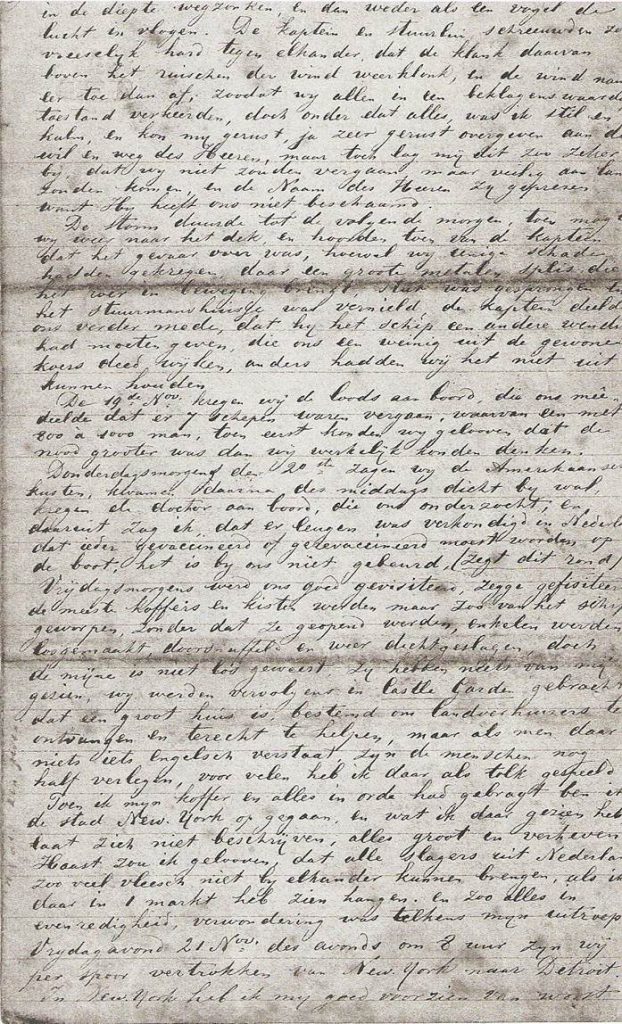 in de diepte wegzonken, en dan weder als een vogel de
lucht in vlogen. De kaptein en stuurlui, schreeuwden zoo
vreeselijk hard tegen elkander, dat de klank daarvan
boven het ruischen der wind weerklonk, en de wind nam
eer toe dan af, zoodat wij allen in een beklagenswaard
toestand verkeerden, doch onder dat alles, was ik stil en
kalm, en kon mij gerust, ja zeer gerust overgeven aan de
wil en weg des Heeren, maar toch lag mij dit zoo zeker
bij, dat wij niet zouden vergaan maar veilig aan lan
zouden komen, en de Naam des Heeren zij geprezen
want Hij heeft ons niet beschaamd.
De storm duurde tot de volgende morgen, toen mog
wij weer naar het dek, en hoorden toen van de kaptein
dat het gevaar over was, hoewel wij eenige schade
hadden gekregen, daar een groote metalen spil, die
het roer in beweging brengt, stuk was gesprongen en
het stuurmanshuisje was vernield, de kaptein deelde
ons verder mede, dat hij het schip een andere wendi
had moeten geven, die ons een weinig uit de gewone
koers deed wijken, anders hadden wij het niet uit
kunnen houden
De 19de Nov. kregen wij de loods aan boord, die ons mêe
deelde dat er 7 schepen waren vergaan, waarvan een met
800 a 1000 man, toen eerst konden wij gelooven dat de
nood grooter was dan wij werkelijk konden denken.
Donderdagsmorgens den 20ste zagen wij de Amerikaansch
kusten, kwamen daarna des middags dicht bij wal,
kregen de doctor aan boord, die ons onderzocht, en
daaruit zag ik dat er leugen was verkondigd in Nederl
dat ieder gevaccineerd of gerevaccineerd moest worden op
de boot; het is bij ons niet gebeurd, (Zegt dit rond)
Vrijdagsmorgens werd ons goed gevisiteerd, zegge gefisiteer
de meeste koffers en kisten werden maar zoo van het schip
geworpen, zonder dat ze geopend werden, enkelen werden
losgemaakt, doorsnuffeld en weer dichtgeslagen, doch
de mijne is niet los geweest. Zij hebben niets van mij
gezien, wij werden vervolgens in Castle Garden gebracht
dat een groot huis is, bestemd om landverhuizers te
ontvangen en terecht te helpen, maar als men daar
niets iets engelsch verstaat, zijn de menschen nog
half verlegen, voor velen heb ik daar als tolk gespeeld
Toen ik mijn koffer en alles in orde had gebragt ben ik
de stad New. York op gegaan, en wat ik daar gezien heb
laat zich niet beschrijven, alles groot en verheven
Haast zou ik gelooven, dat alle slagers uit Nederlan
zoo veel vleesch niet bij elkander kunnen brengen, als ik
daar in 1 markt heb zien hangen. en zoo alles in
evenredigheid, verwondering was telkens mijn uitroep
Vrijdagavond 21 Nov. des avonds, om 8 uur zijn wij
per spoor vertrokken van New. York naar Detroit.
In New. York heb ik mij goed voorzien van worst